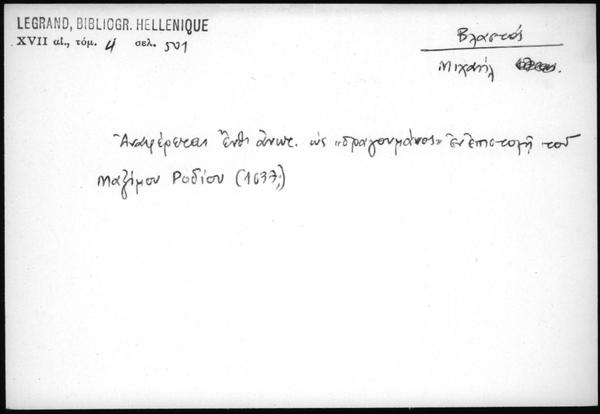 LEGRAND, BIBLIOGR. HELLENIQUE
XVII αἰ., τόμ. 4 σελ. 501
Βλαστός
Μιχαήλ
Ἀναφέρεται ἔνθ' ἀνωτ. ὡς «δραγουμάνος» ἐν ἐπιστολῇ τοῦ
Μαξίμου Ροδίου (1637;)